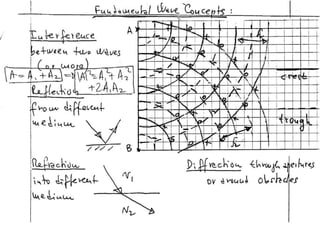 Fundamental Wave Concepts :
Interference
between two waves
(or more)
A = A₁ + A₂ ⇒ |A|² = A₁² + A₂²
+ 2A₁A₂
Reflection
from different
medium
A
B
λ
crest
trough
λ
Refraction
into different
medium
N₁
N₂
Diffraction through apertures
or around obstacles